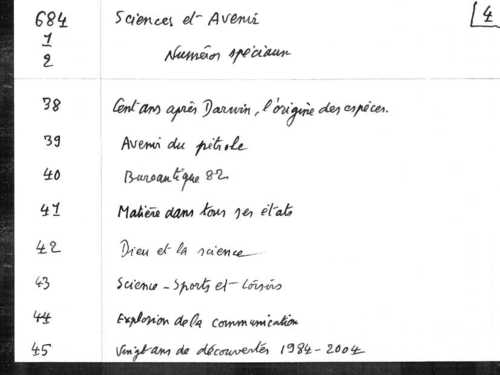 684 Sciences et Avenir 4
1
2 Numéros spéciaux
38 Cent ans après Darwin, l'origine des espèces.
39 Avenir du pétrole
40 Bureautique 82
41 Matière dans tous ses états
42 Dieu et la science
43 Science - Sports et Loisirs
44 Explosion de la communication
45 Vingt ans de découvertes 1984-2004